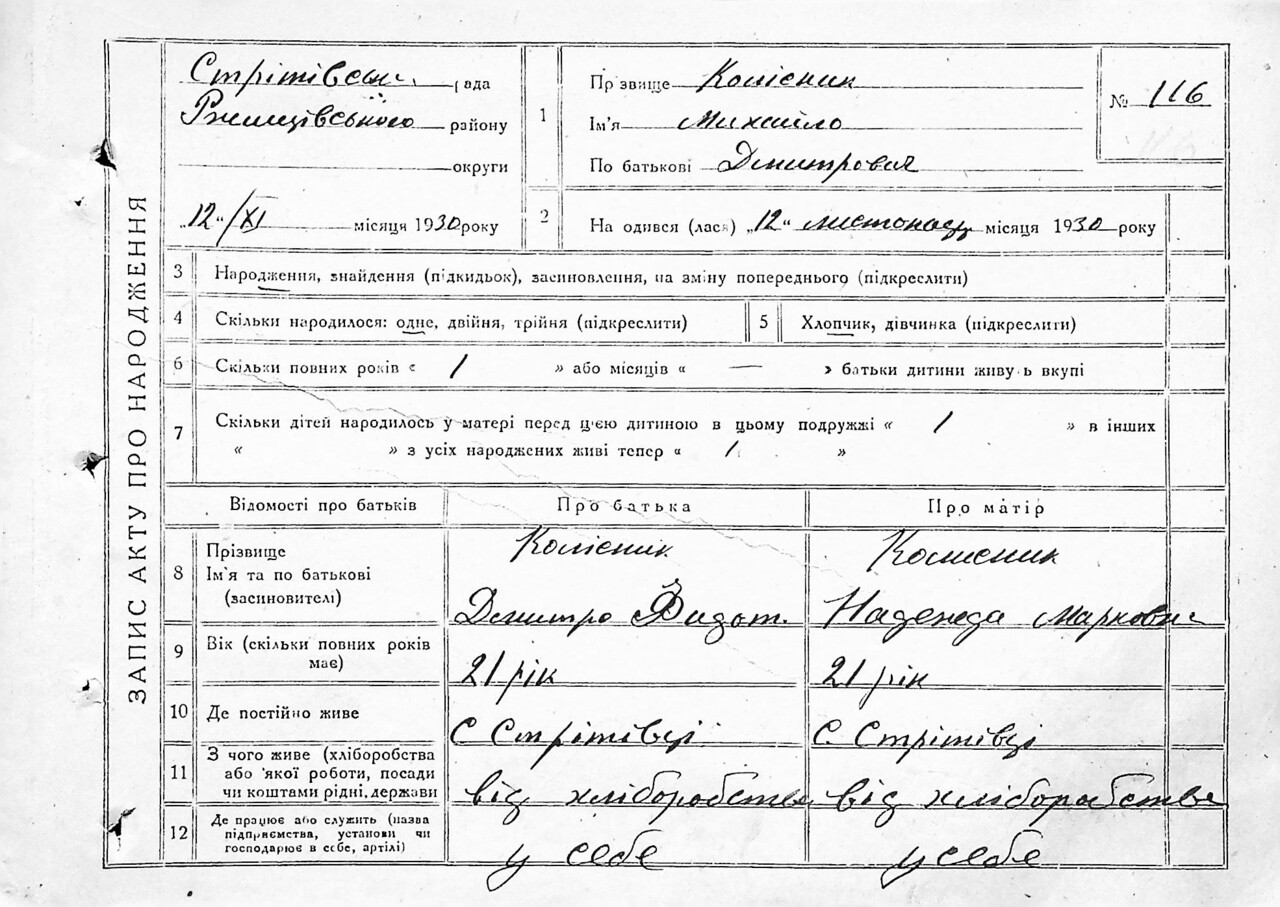 ЗАПИС АКТУ ПРО НАРОДЖЕННЯ
Стрітівськ. рада
Ржищівського району
округи
„12“/XI місяця 1930 року
1
Прізвище Колісник
Ім'я Михайло
По батькові Дмитрович
№ 116
2
Народився (лася) „12“ листопад місяця 1930 року
3 Народження, знайдення (підкидьок), засиновлення, на зміну попереднього (підкреслити)
4 Скільки народилося: одне, двійня, трійня (підкреслити)
5 Хлопчик, дівчинка (підкреслити)
6 Скільки повних років « 1 » або місяців « — » батьки дитини живуть вкупі
7 Скільки дітей народилось у матері перед цією дитиною в цьому подружжі « 1 » в інших
« » з усіх народжених живі тепер « 1 »
Відомості про батьків Про батька Про матір
8 Прізвище Колісник Колисник
Ім'я та по батькові
(засиновителі) Дмитро Федот. Надежда Марковн
9 Вік (скільки повних років
має) 21 рік 21 рік
10 Де постійно живе С Стрітівці С. Стрітівці
11 З чого живе (хліборобства
або якої роботи, посади
чи коштами рідні, держави від хліборобства від хліборобства
12 Де працює або служить (назва
підприємства, установи чи
господарює в себе, артілі) у себе у себе